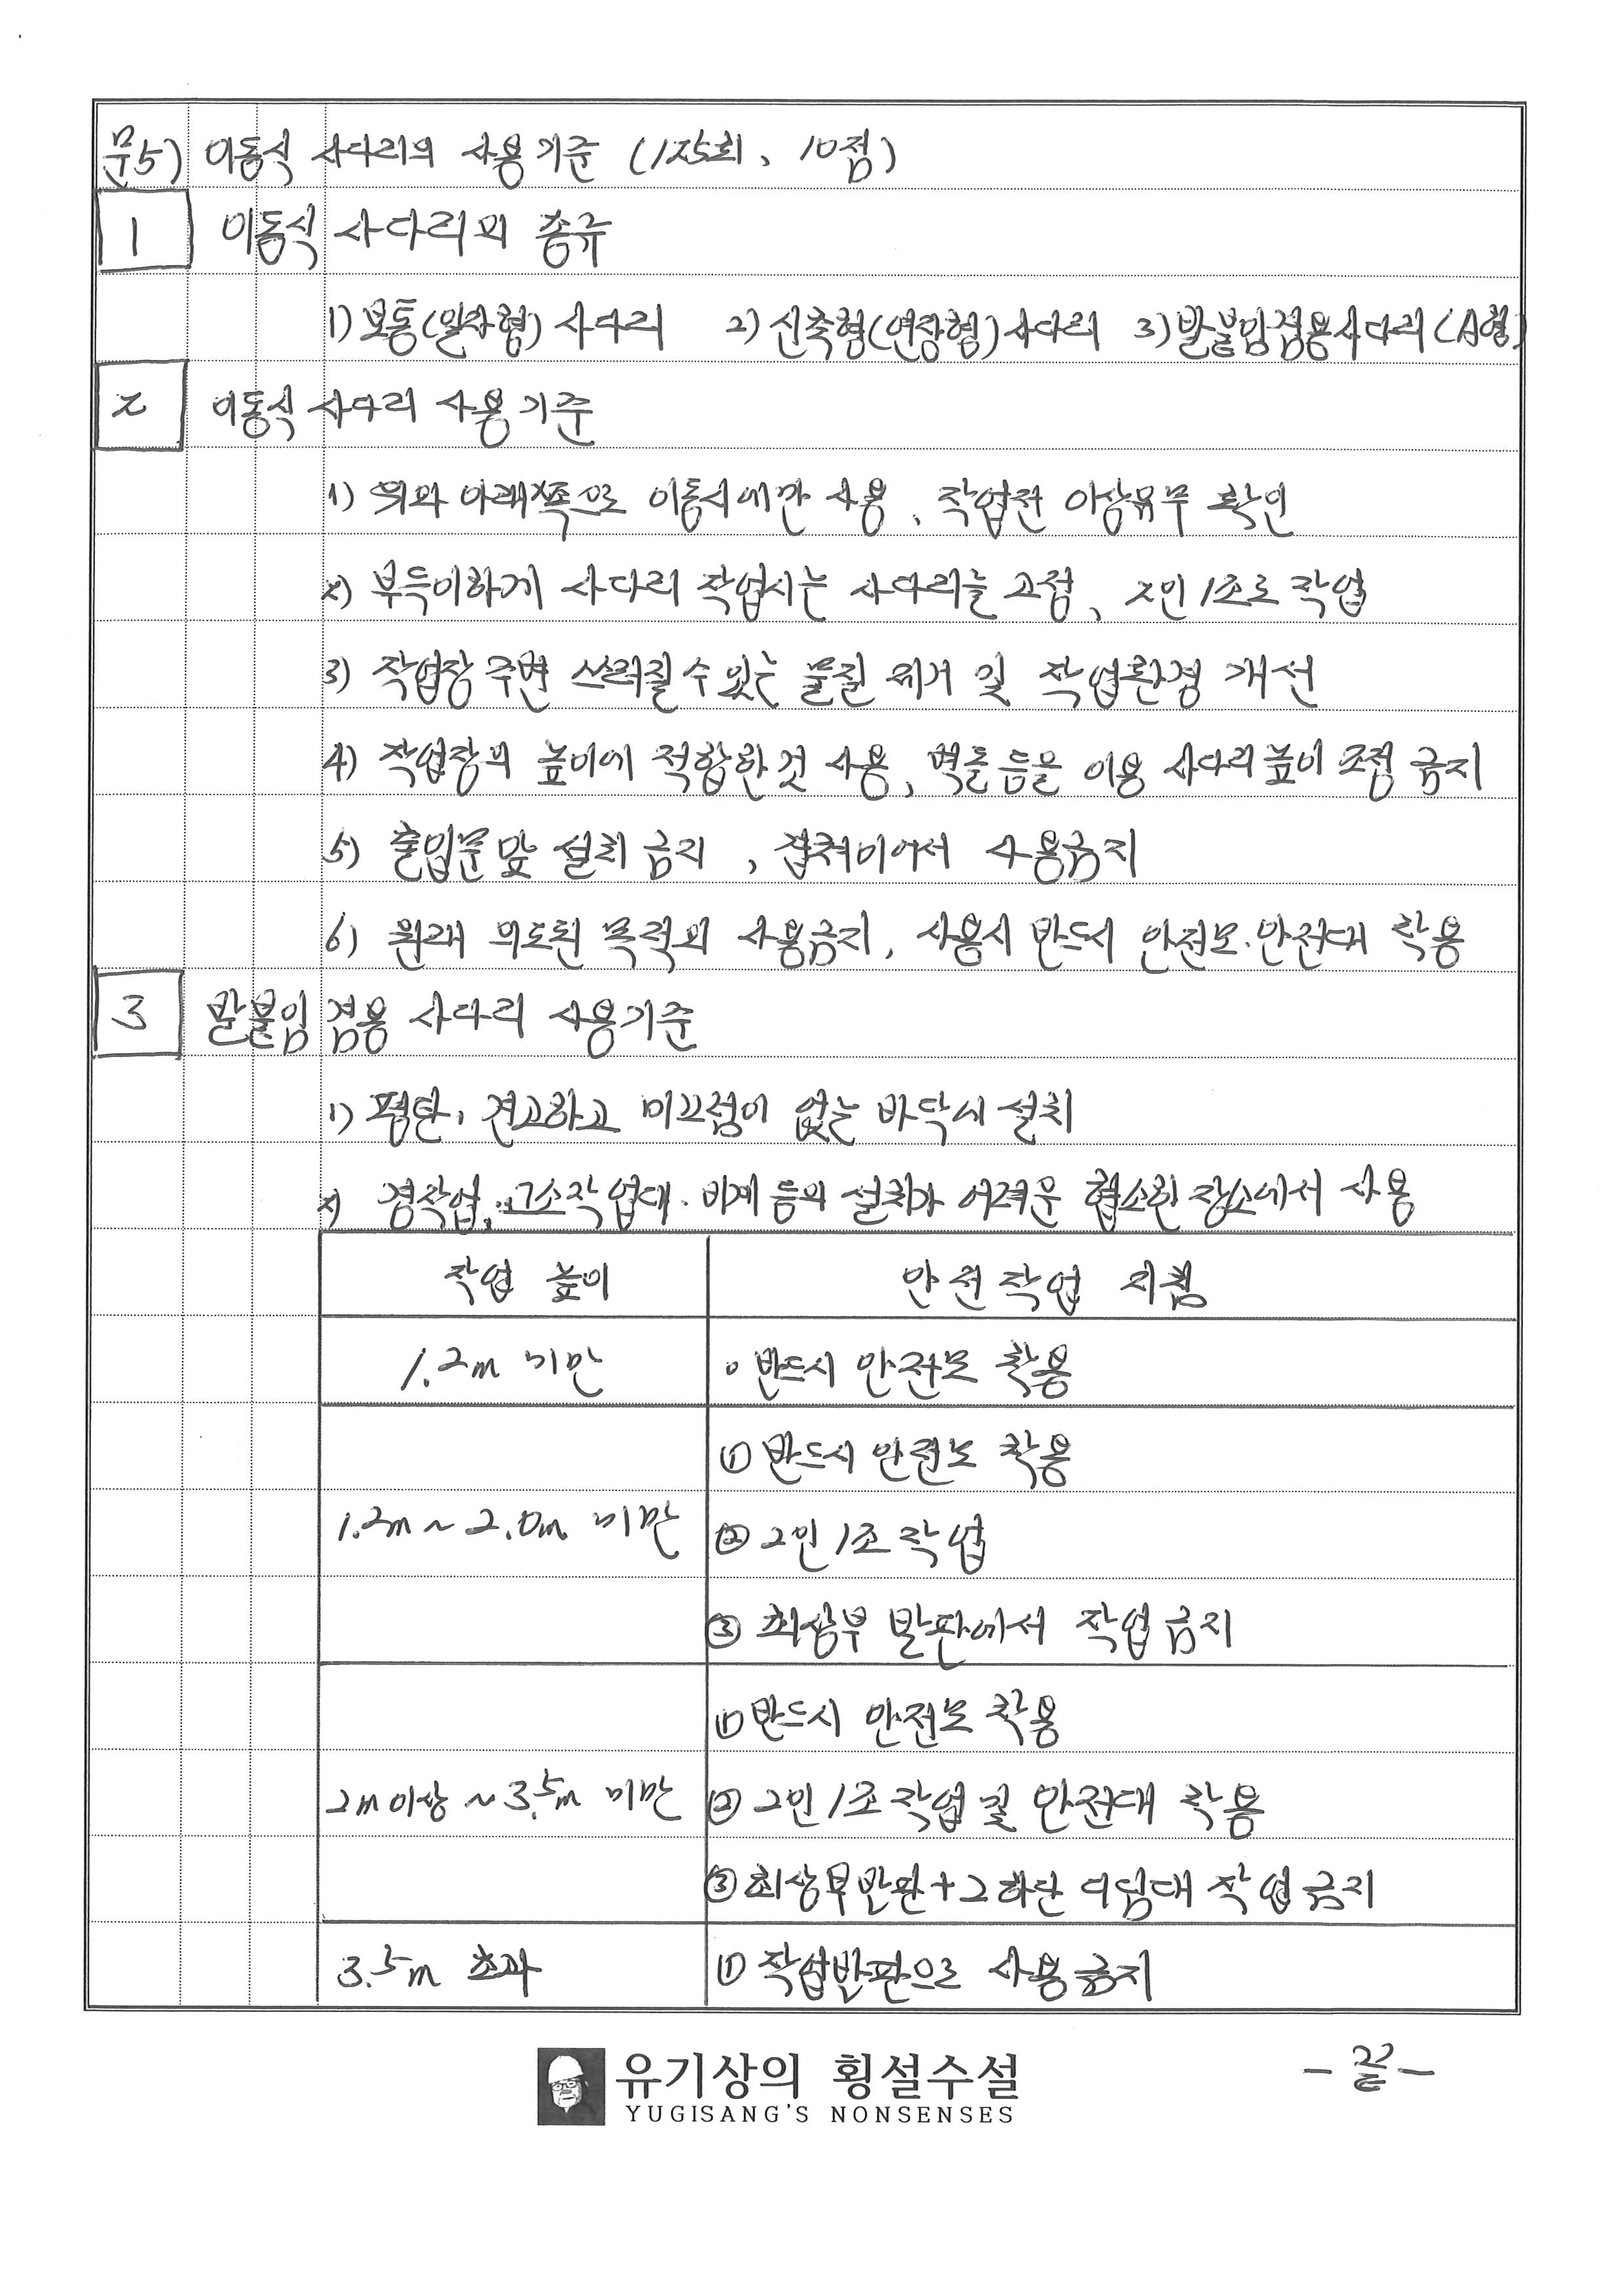 문5) 이동식 사다리의 사용기준 (125회, 10점)
1 이동식 사다리의 종류
1) 보통(일자형) 사다리 2) 신축형(연장형)사다리 3) 발붙임겸용사다리(A형)
2 이동식 사다리 사용기준
1) 위와 아래쪽으로 이동시에만 사용, 작업전 이상유무 확인
2) 부득이하게 사다리 작업시는 사다리를 고정, 2인1조로 작업
3) 작업장 주변 쓰러질수있는 물질 제거 및 작업환경 개선
4) 작업장의 높이에 적합한것 사용, 벽돌 등을 이용 사다리높이 조절 금지
5) 출입문앞 설치금지, 겹쳐이어서 사용금지
6) 원래 의도된 목적외 사용금지, 사용시 반드시 안전모·안전대 착용
3 발붙임 겸용 사다리 사용기준
1) 평탄, 견고하고 미끄럼이 없는 바닥에 설치
2) 경작업, 고소작업대·비계 등의 설치가 어려운 협소한 장소에서 사용
작업 높이 안전작업 지침
1.2m 미만 ∘반드시 안전모 착용
① 반드시 안전모 착용
1.2m ~ 2.0m 미만 ② 2인1조작업
③ 최상부 발판에서 작업금지
① 반드시 안전모 착용
2m이상 ~ 3.5m 미만 ② 2인1조작업 및 안전대 착용
③ 최상부발판+그하단 디딤대 작업금지
3.5m 초과 ① 작업발판으로 사용금지
유기상의 횡설수설 - 끝 -
YUGISANG'S NONSENSES